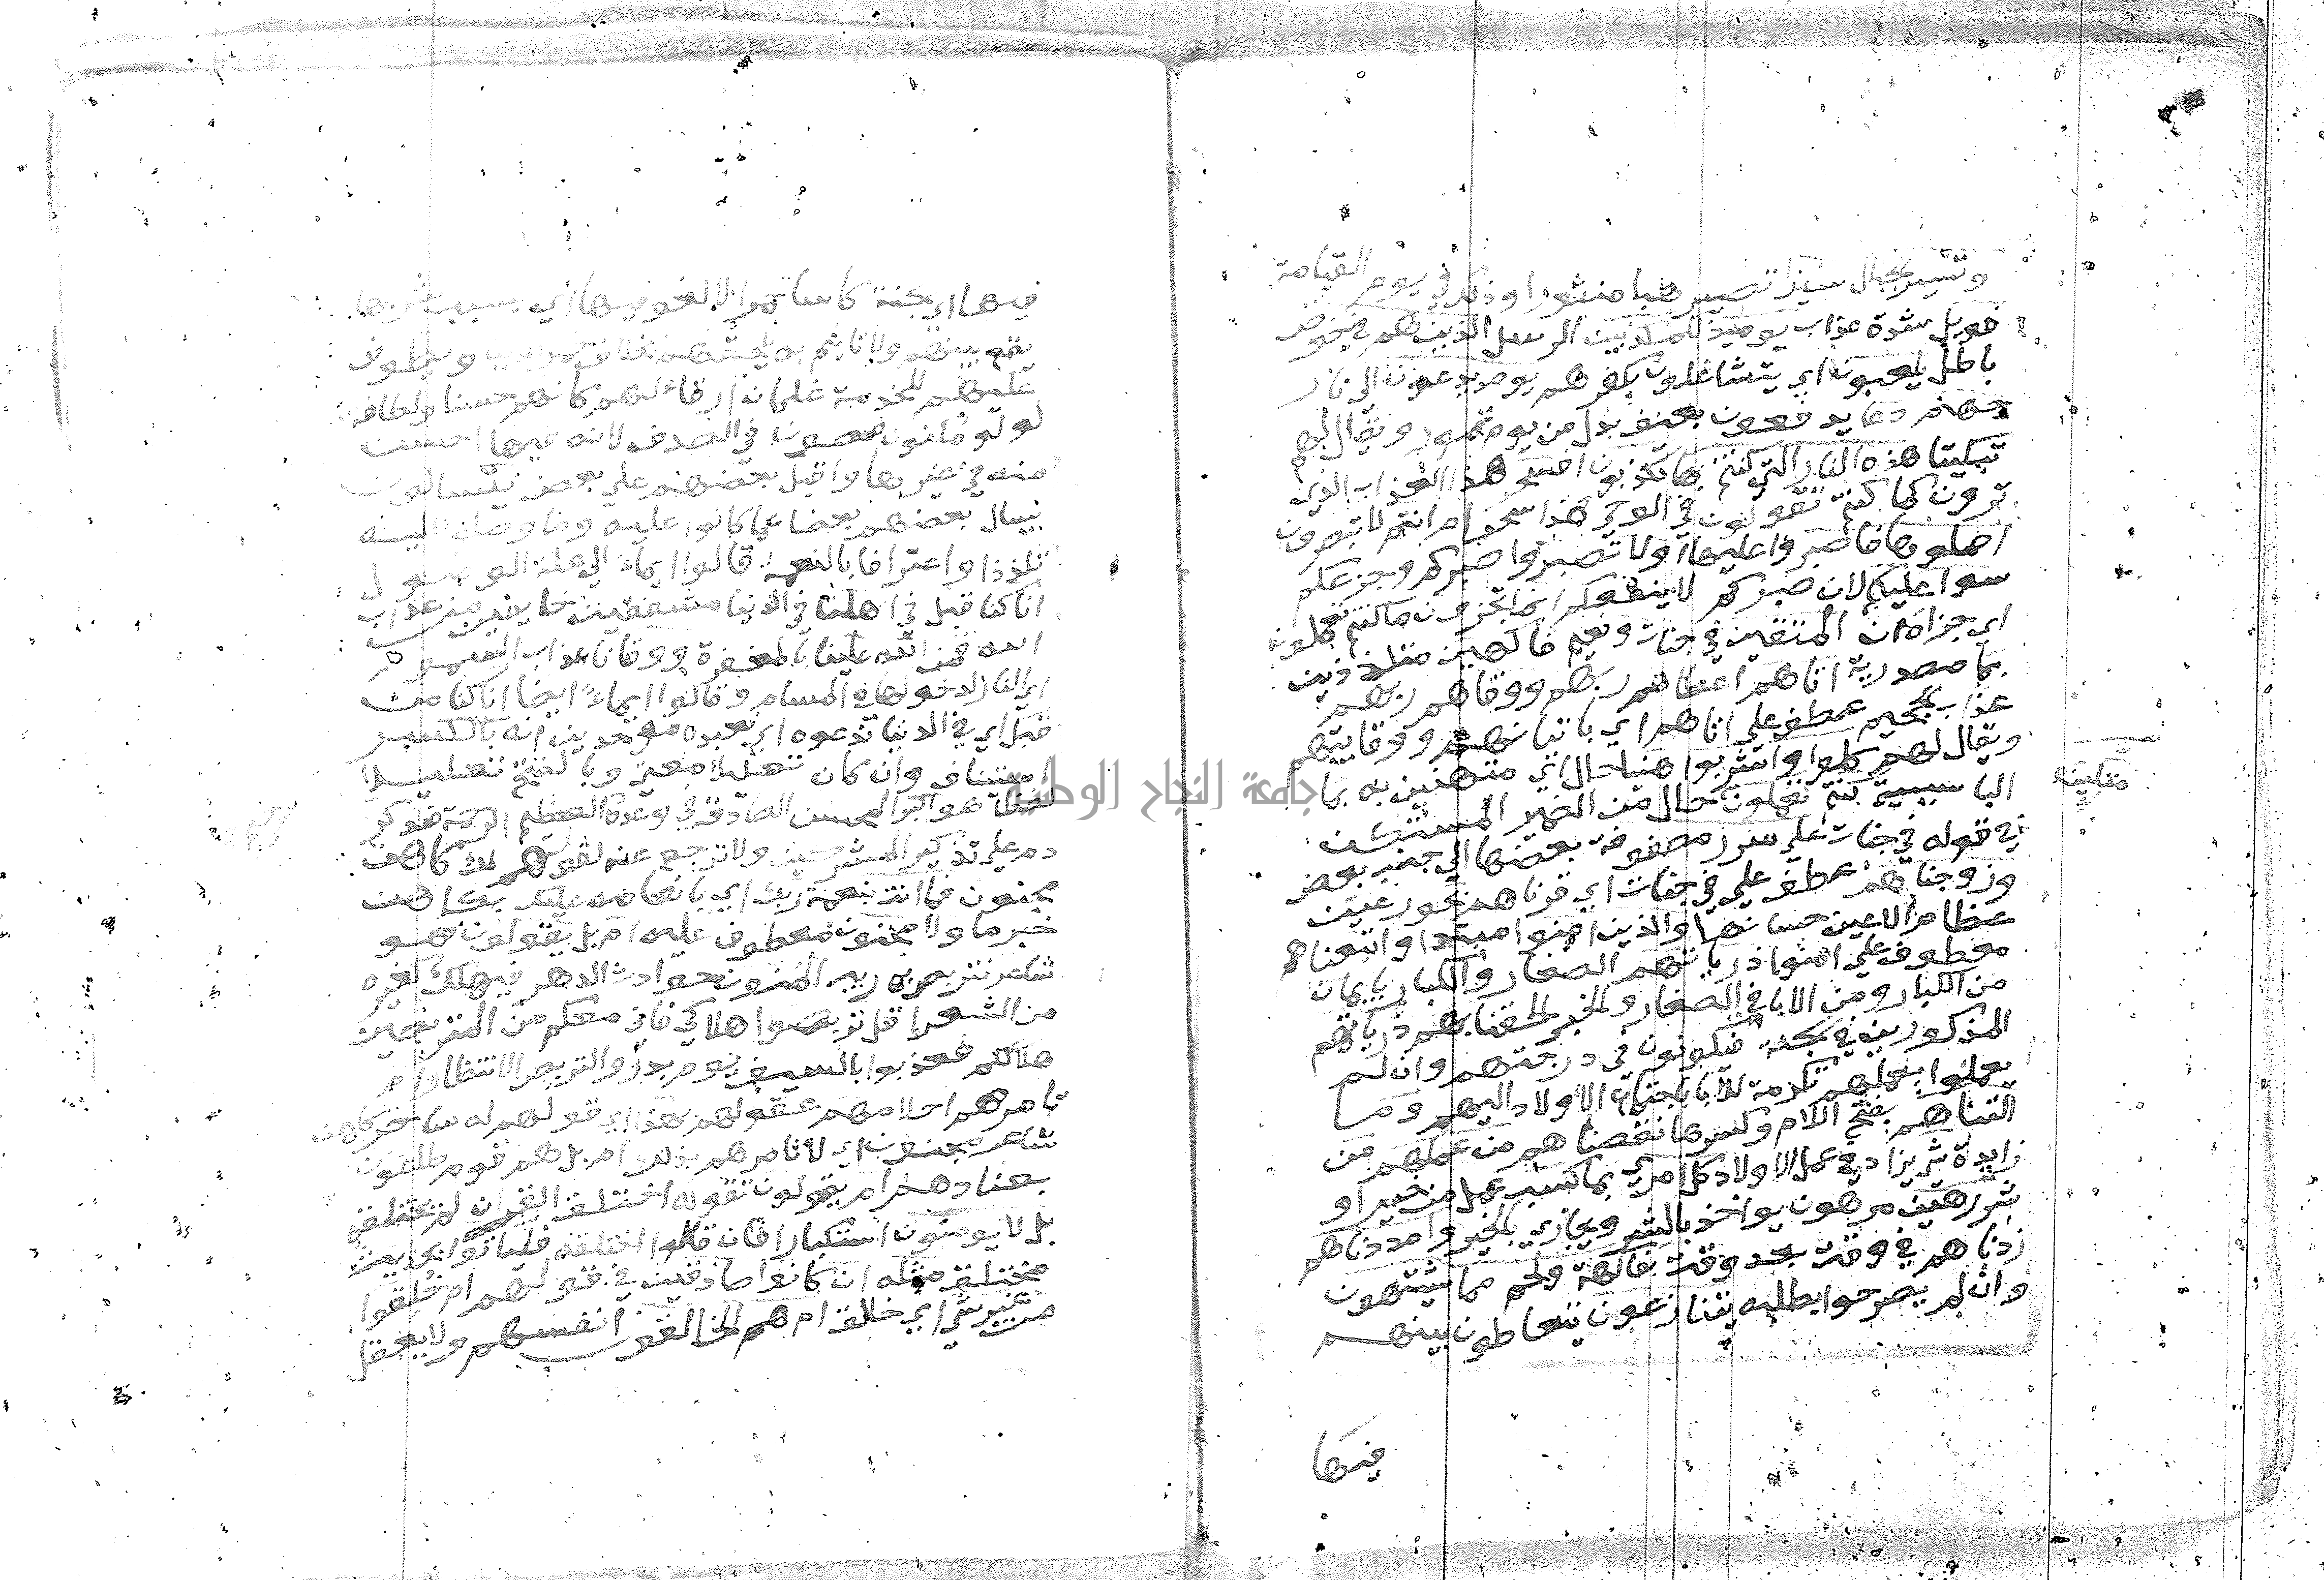 وتسير الجبال سيرا تصير هبا منثورا وذلك في يوم القيامة
فويل شدة عذاب يوميذ للمكذبين الرسل الذين هم في خوض
باطل يلعبون اي يتشاغلون بكفرهم يوم يدعون الي نار
جهنم دعا يدفعون بعنف بدل من يوم تمور ويقال لهم
تبكيتا هذه النار التي كنتم بها تكذبون افسحر هذا العذاب الذي
ترون كما كنتم تقولون في الوحي هذا سحر ام انتم لا تبصرون
اصلوها فاصبروا عليها اولا تصبروا صبركم وجزعكم
سوا عليكم لان صبركم لا ينفعكم انما تجزون ما كنتم تعملون
اي جزاه ان المتقين في جنات ونعيم فاكهين متلذذين
بما مصدرية اتاهم اعطاهم ربهم ووقاهم ربهم
عذاب الجحيم عطف علي اتاهم اي باتيانهم ووقايتهم
ويقال لهم كلوا واشربوا هنيا حال اي متهنين به بما
البا سببية كنتم تعملون حال من الضمير المستكن
في قوله في جنات علي سرر مصفوفة بعضها الي جنب بعض
وزوجناهم عطف علي في جنات اي قرناهم بحور عين
عظام الاعين حسانها والذين امنوا مبتدا واتبعناهم
معطوف علي امنوا ذرياتهم الصغار والكبار بايمان
من الكبار ومن الابا في الصغار والخبر الحقنا بهم ذرياتهم
المذكورين في الجنة فيكونون في درجتهم وان لم
يعملوا بعملهم تكرمة للابا باجتماع الاولاد اليهم وما
التناهم بفتح اللام وكسرها نقصناهم من عملهم من
زايدة شي يزاد في عمل الاولاد كل امري بما كسب عمل من خير او
شر رهين مرهون يواخذ بالشر ويجازي بالخير وامددناهم
زدناهم في وقت بعد وقت بفاكهة ولحم مما يشتهون
وان لم يصرحوا بطلبه يتنازعون يتعاطون بينهم
فيها
فيها اي الجنة كاسا خمرا لا لغو فيها اي بسبب شربها
يقع بينهم ولا تاثيم به يلحقهم بخلاف خمر الدنيا ويطوف
عليهم للخدمة غلمان ارقاء لهم كانهم حسنا ولطافة
لولو مكنون مصون في الصدف لانه فيها احسن
منه في غيرها واقبل بعضهم علي بعض يتسالون
يسال بعضهم بعضا عما كانوا عليه وما وصلوا اليه
تلذذا واعترافا بالنعمة قالوا ايماء الي علة الوصول
انا كنا قبل في اهلنا في الدنيا مشفقين خايفين من عذاب
الله فمن الله علينا بالمغفرة ووقانا عذاب السموم
اي النار لدخولها في المسام وقالوا ايماءً ايضا انا كنا من
قبل اي في الدنيا ندعوه اي نعبده موحدين انه بالكسر
استينافا وان كان تعليلا معني وبالفتح تعليلا
لفظا هو البر المحسن الصادق في وعده العظيم الرحمة فذكر
دم علي تذكير المشركين ولا ترجع عنه لقولهم لك كاهن
مجنون فما انت بنعمة ربك اي بانعامه عليك بكاهن
خبر ما ولا مجنون معطوف عليه ام بل يقولون هو
شاعر نتربص به ريب المنون حوادث الدهر فيهلك كغيره
من الشعرا قل تربصوا هلاكي فاني معكم من المتربصين
هلاككم فعذبوا بالسيف يوم بدر والتربص الانتظار ام
تامرهم احلامهم عقولهم بهذا اي قولهم له ساحر كاهن
شاعر مجنون اي لا تامرهم بذلك ام بل هم قوم طاغون
بعنادهم ام يقولون تقوله اختلق القران لم يختلقه
بل لا يومنون استكبارا فان قالوا اختلقه فلياتوا بحديث
مختلق مثله ان كانوا صادقين في قولهم ام خلقوا
من غير شي اي خالق ام هم الخالقون انفسهم ولا يعقل
جامعة النجاح الوطنية